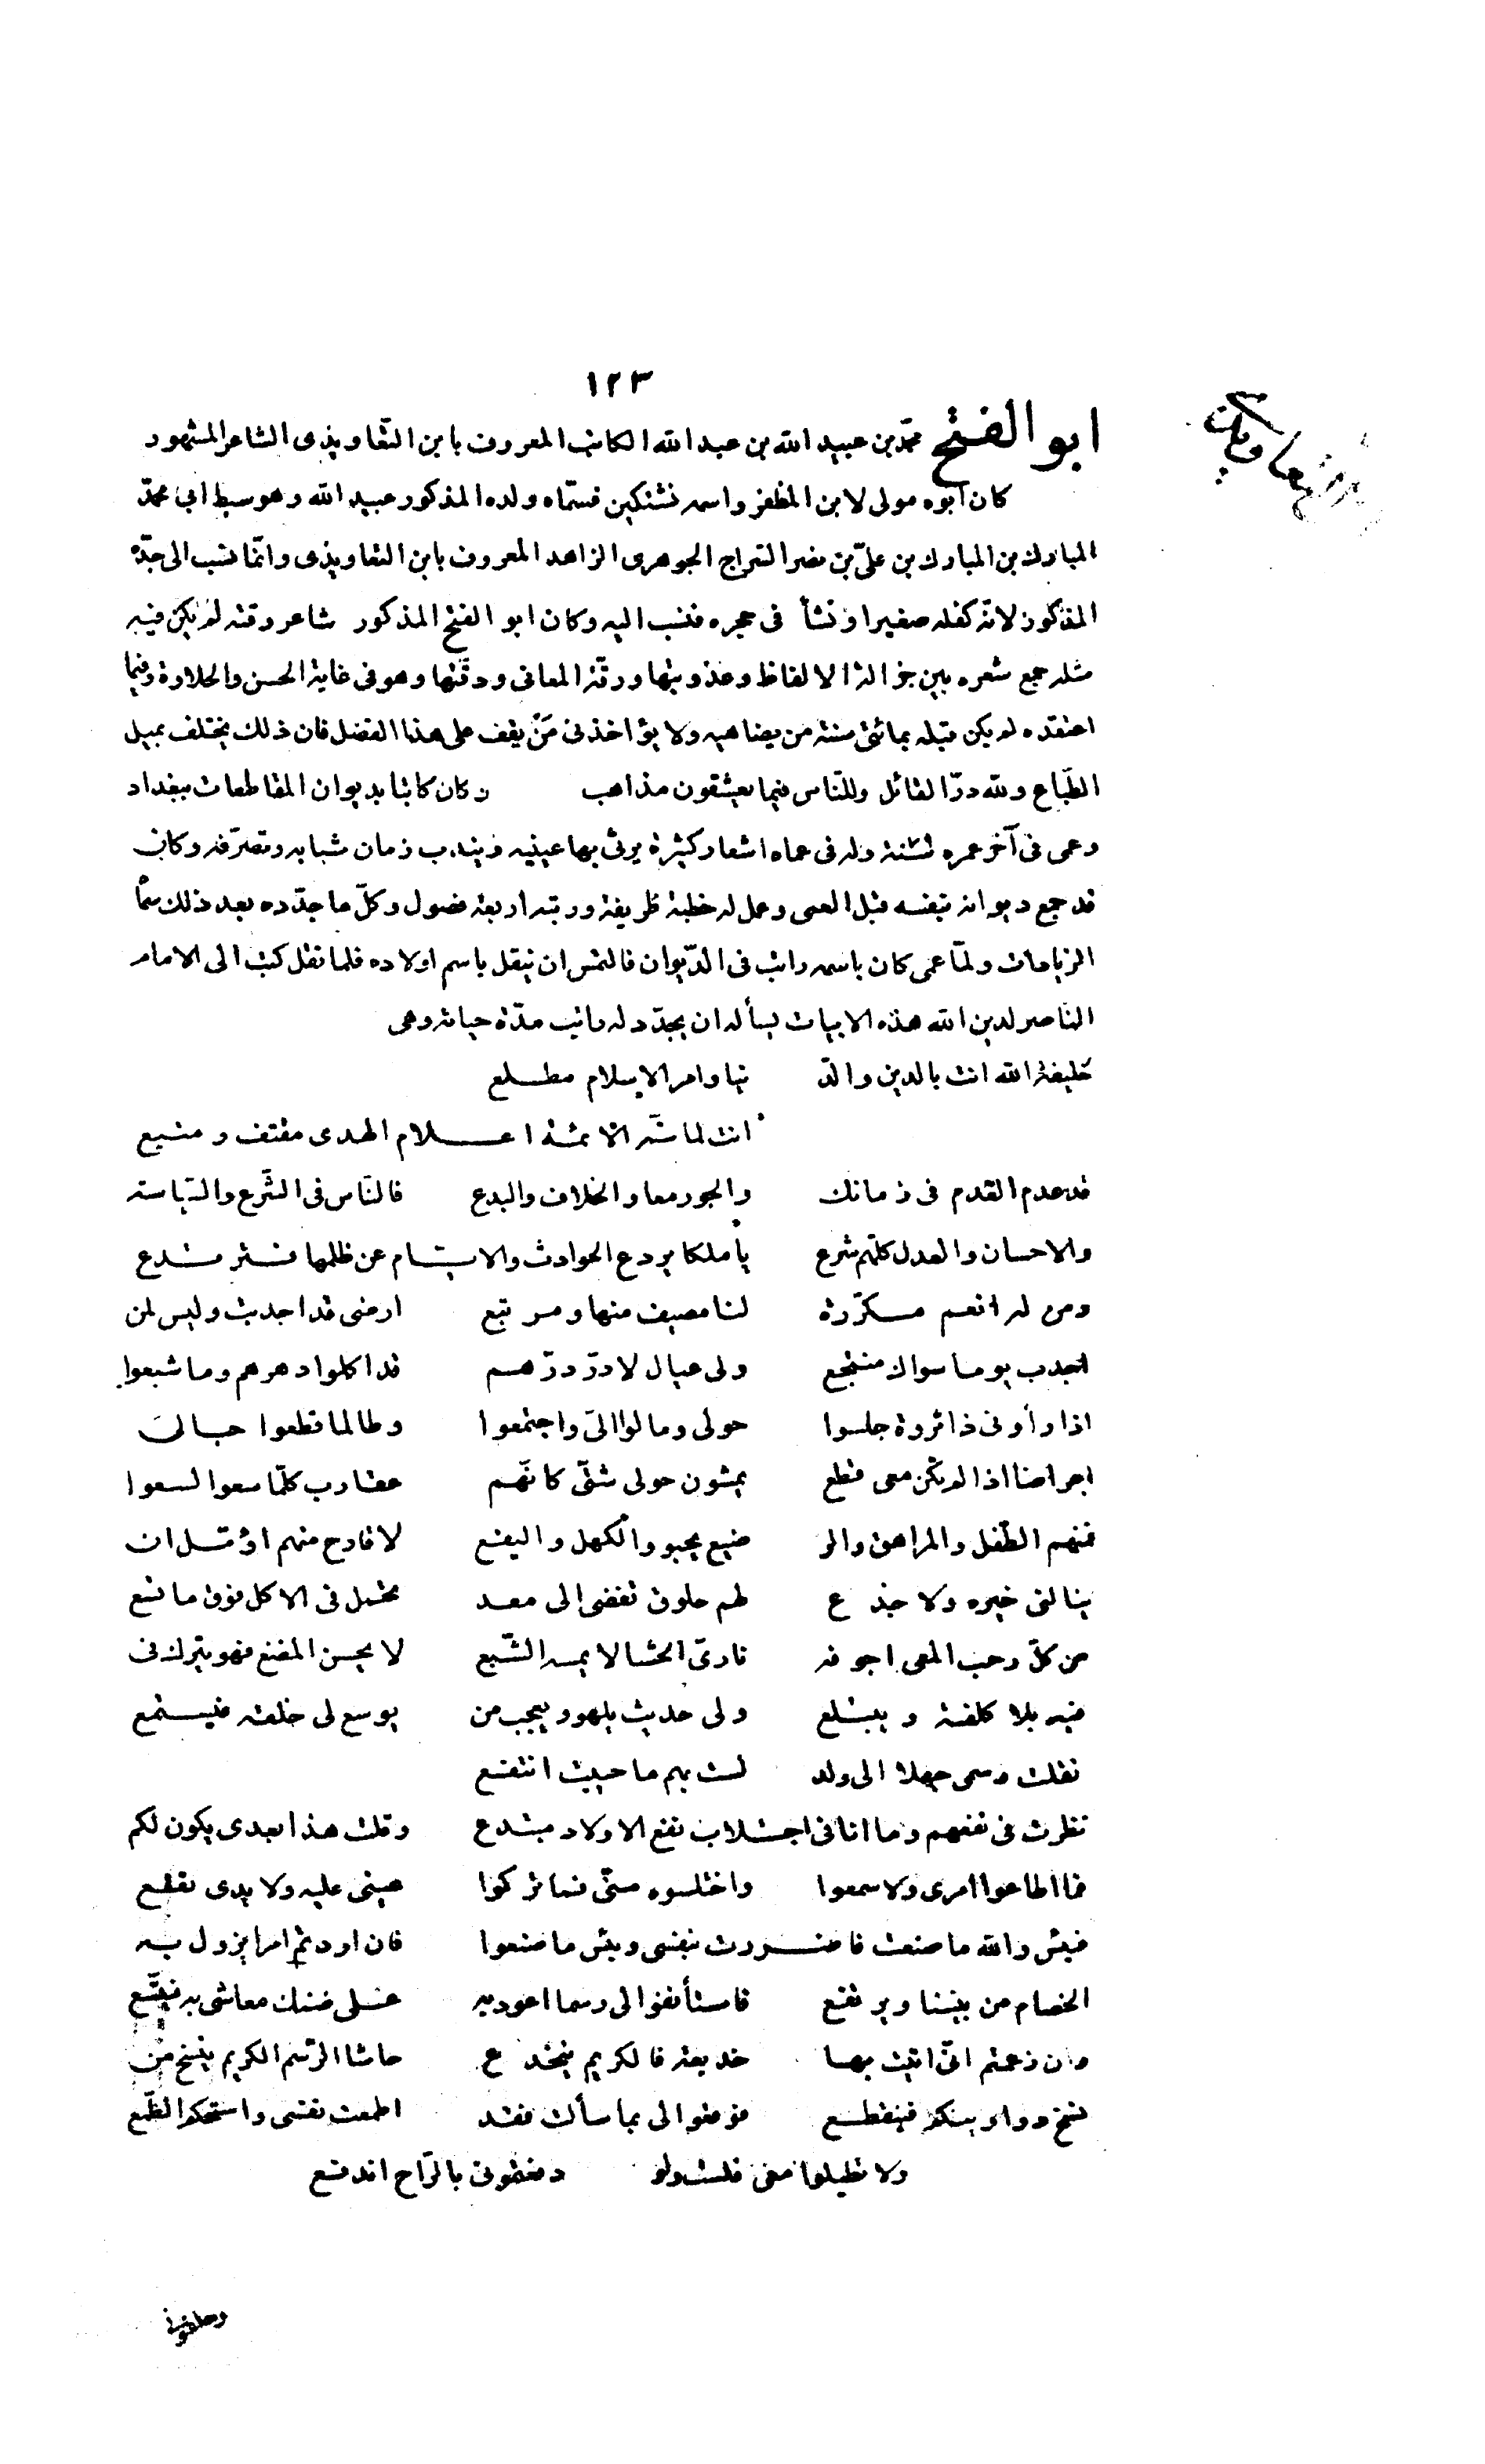 ١٢٣
ابن التعاويذي
ابو الفتح محمّد بن عبيد الله بن عبد الله الكاتب المعروف بابن التّعاويذى الشاعر المشهور
كان ابوه مولى لابن المظفر واسمه نشتكين فسمّاه ولده المذكور عبيد الله وهو سبط ابى محمّد
المبارك بن المبارك بن علىّ بن نصر السّراج الجوهرى الزاهد المعروف بابن التعاويذى وانّما نسب الى جدّه
المذكور لانّه كفله صغيرا ونشأ فى حجره فنسب اليه وكان ابو الفتح المذكور شاعر وقته لم يكن فيه
مثله جمع شعره بين جزالة الالفاظ وعذوبتها ورقّة المعانى ودقّتها وهو فى غاية الحسن والحلاوة وفيما
اعتقده لم يكن قبله بمائتى سنة من يضاهيه ولا يؤاخذنى مَنْ يقف على هذا الفضل فان ذلك يختلف بميل
الطّباع ولله درّ القائل وللنّاس فيما يعشقون مذاهب وكان كاتبا بديوان المقاطعات ببغداد
وعمى فى آخر عمره سنة وله فى عماه اشعار كثيرة يرثى بها عينيه ويندب زمان شبابه وتصرّفه وكان
قد جمع ديوانه بنفسه قبل العمى وعمل له خطبة ظريفة ورتبه اربعة فصول وكلّ ما جدّده بعد ذلك سمّا
الزيادات ولمّا عمى كان باسمه راتب فى الدّيوان فالتمس ان ينقل باسم اولاده فلما نقل كتب الى الامام
الناصر لدين الله هذه الابيات يسأله ان يجدّد له راتب مدّة حياته وهى
خليفة الله انت بالدين والدّ نيا وامر الاسلام مطلع
انت لما سنّه الائمّة اعلام الهدى مقتف ومتبع
قد عدم القدم فى زمانك والجور معا والخلاف والبدع فالنّاس فى الشّرع والسّياسة
والاحسان والعدل كلّهم شرع يا ملكا يردع الحوادث والايّام عن ظلمها فترتدع
ومن له انعم مكرّرة لنا مصيف منها ومرتبع ارضى قد اجدبت وليس لمن
اجدب يوما سواك منتجع ولى عيال لا درّ درّهم قد اكلوا دهرهم وما شبعوا
اذا رأونى ذا ثروة جلسوا حولى ومالوا الىّ واجتمعوا وطالما قطعوا حبالى
اعراضا اذا لم يكن معى قطع يمشون حولى شتّى كانّهم عقارب كلّما سعوا لسعوا
فمنهم الطّفل والمراهق والر ضيع يحبو والكهل واليفع لا قارح منهم اؤمّل ان
ينالنى خيره ولا جذع لهم حلوق تفضى الى معد تحمل فى الاكل فوق ما تسع
من كلّ رحب المعى اجوف نارىّ الحشا لا يمسه الشّبع لا يحسن المضغ فهو يترك فى
فيه بلا كلفة ويبتلع ولى حديث يلهو ويعجب من يوسع لى خلقه فيستمع
نقلت رسمى جهلا الى ولد لست بهم ما حييت انتفع
نظرت فى نفعهم وما انا فى اجتلاب نفع الاولاد مبتدع وقلت هذا بعدى يكون لكم
فما اطاعوا امرى ولا سمعوا واختلسوه منّى فما تركوا عينى عليه ولا يدى تقع
فبئس والله ما صنعت فاضررت بنفسى وبئس ما صنعوا فان اردتم امرا يزول به
الخصام من بيننا ويرتفع فاستأنفوا لى رسما اعود به على ضنك معاشى به فيتّسع
وان زعمتم انّى اتيت بها خديعة فالكريم ينخدع حاشا الرّسم الكريم ينسخ من
نسخ دواوينكم فينقطع فوقعوا لى بما سألت فقد اطمعت نفسى واستحكم الطّمع
ولا تطيلوا معى فلست ولو دفعتمونى بالرّاح اندفع
وحلفونى